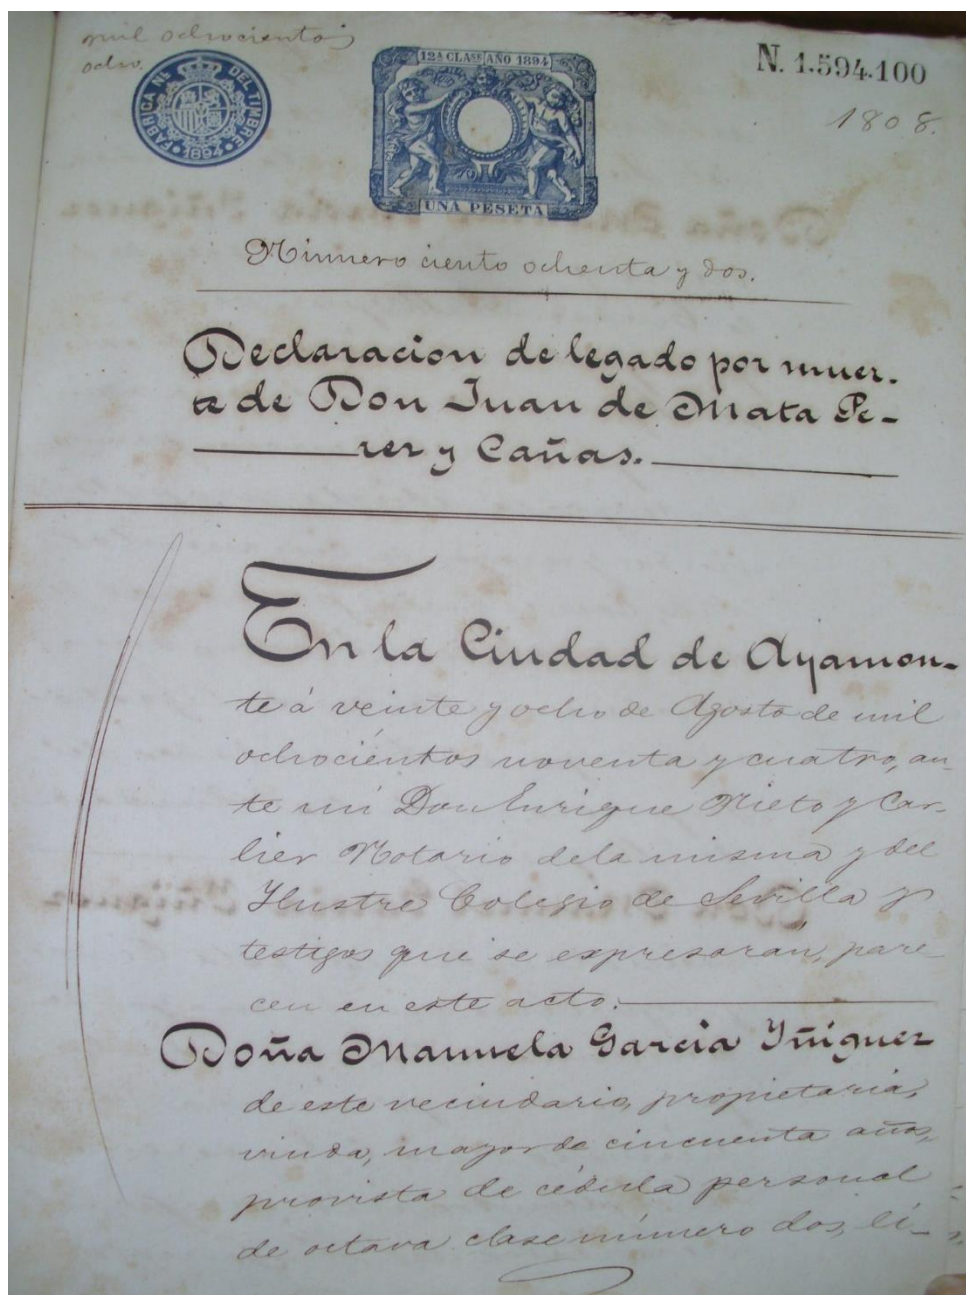 mil ochocientos
ocho.
FABRICA NL. DEL TIMBRE
1894
12ª CLASE AÑO 1894
UNA PESETA
N. 1.594.100
1808.
Número ciento ochenta y dos.
Declaracion de legado por muer-
te de Don Juan de Mata Pe-
rez y Cañas.
En la Ciudad de Ayamon-
te á veinte y ocho de Agosto de mil
ochocientos noventa y cuatro, an-
te mi Don Enrique Nieto y Car-
lier Notario de la misma y del
Ilustre Colegio de Sevilla y
testigos que se expresarán, pare-
cen en este acto.
Doña Manuela Garcia Yñiguez
de este vecindario, propietaria,
viuda, mayor de cincuenta años,
provista de cédula personal
de octava clase número dos, li-